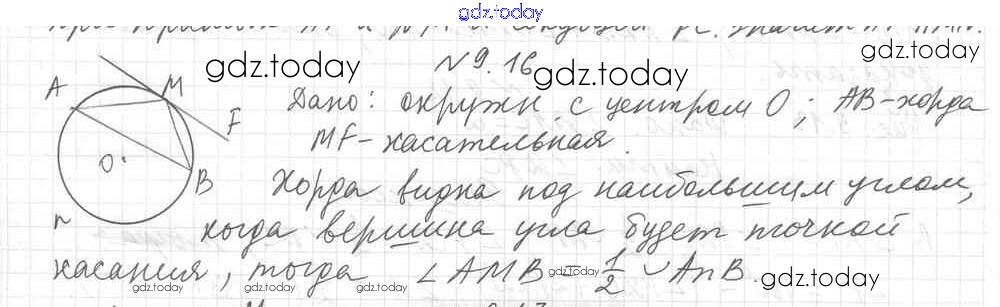 gdz.today
gdz.today
N 9.16
gdz.today
gdz.today
A M F O B n
Дано: окружн. с центром O; AB-хорда
MF-касательная.
Хорда видна под наибольшим углом,
когда вершина угла будет точкой
касания, тогда ∠AMB = 1/2 ◡AnB.
gdz.today
gdz.today
gdz.today
gdz.today
gdz.today